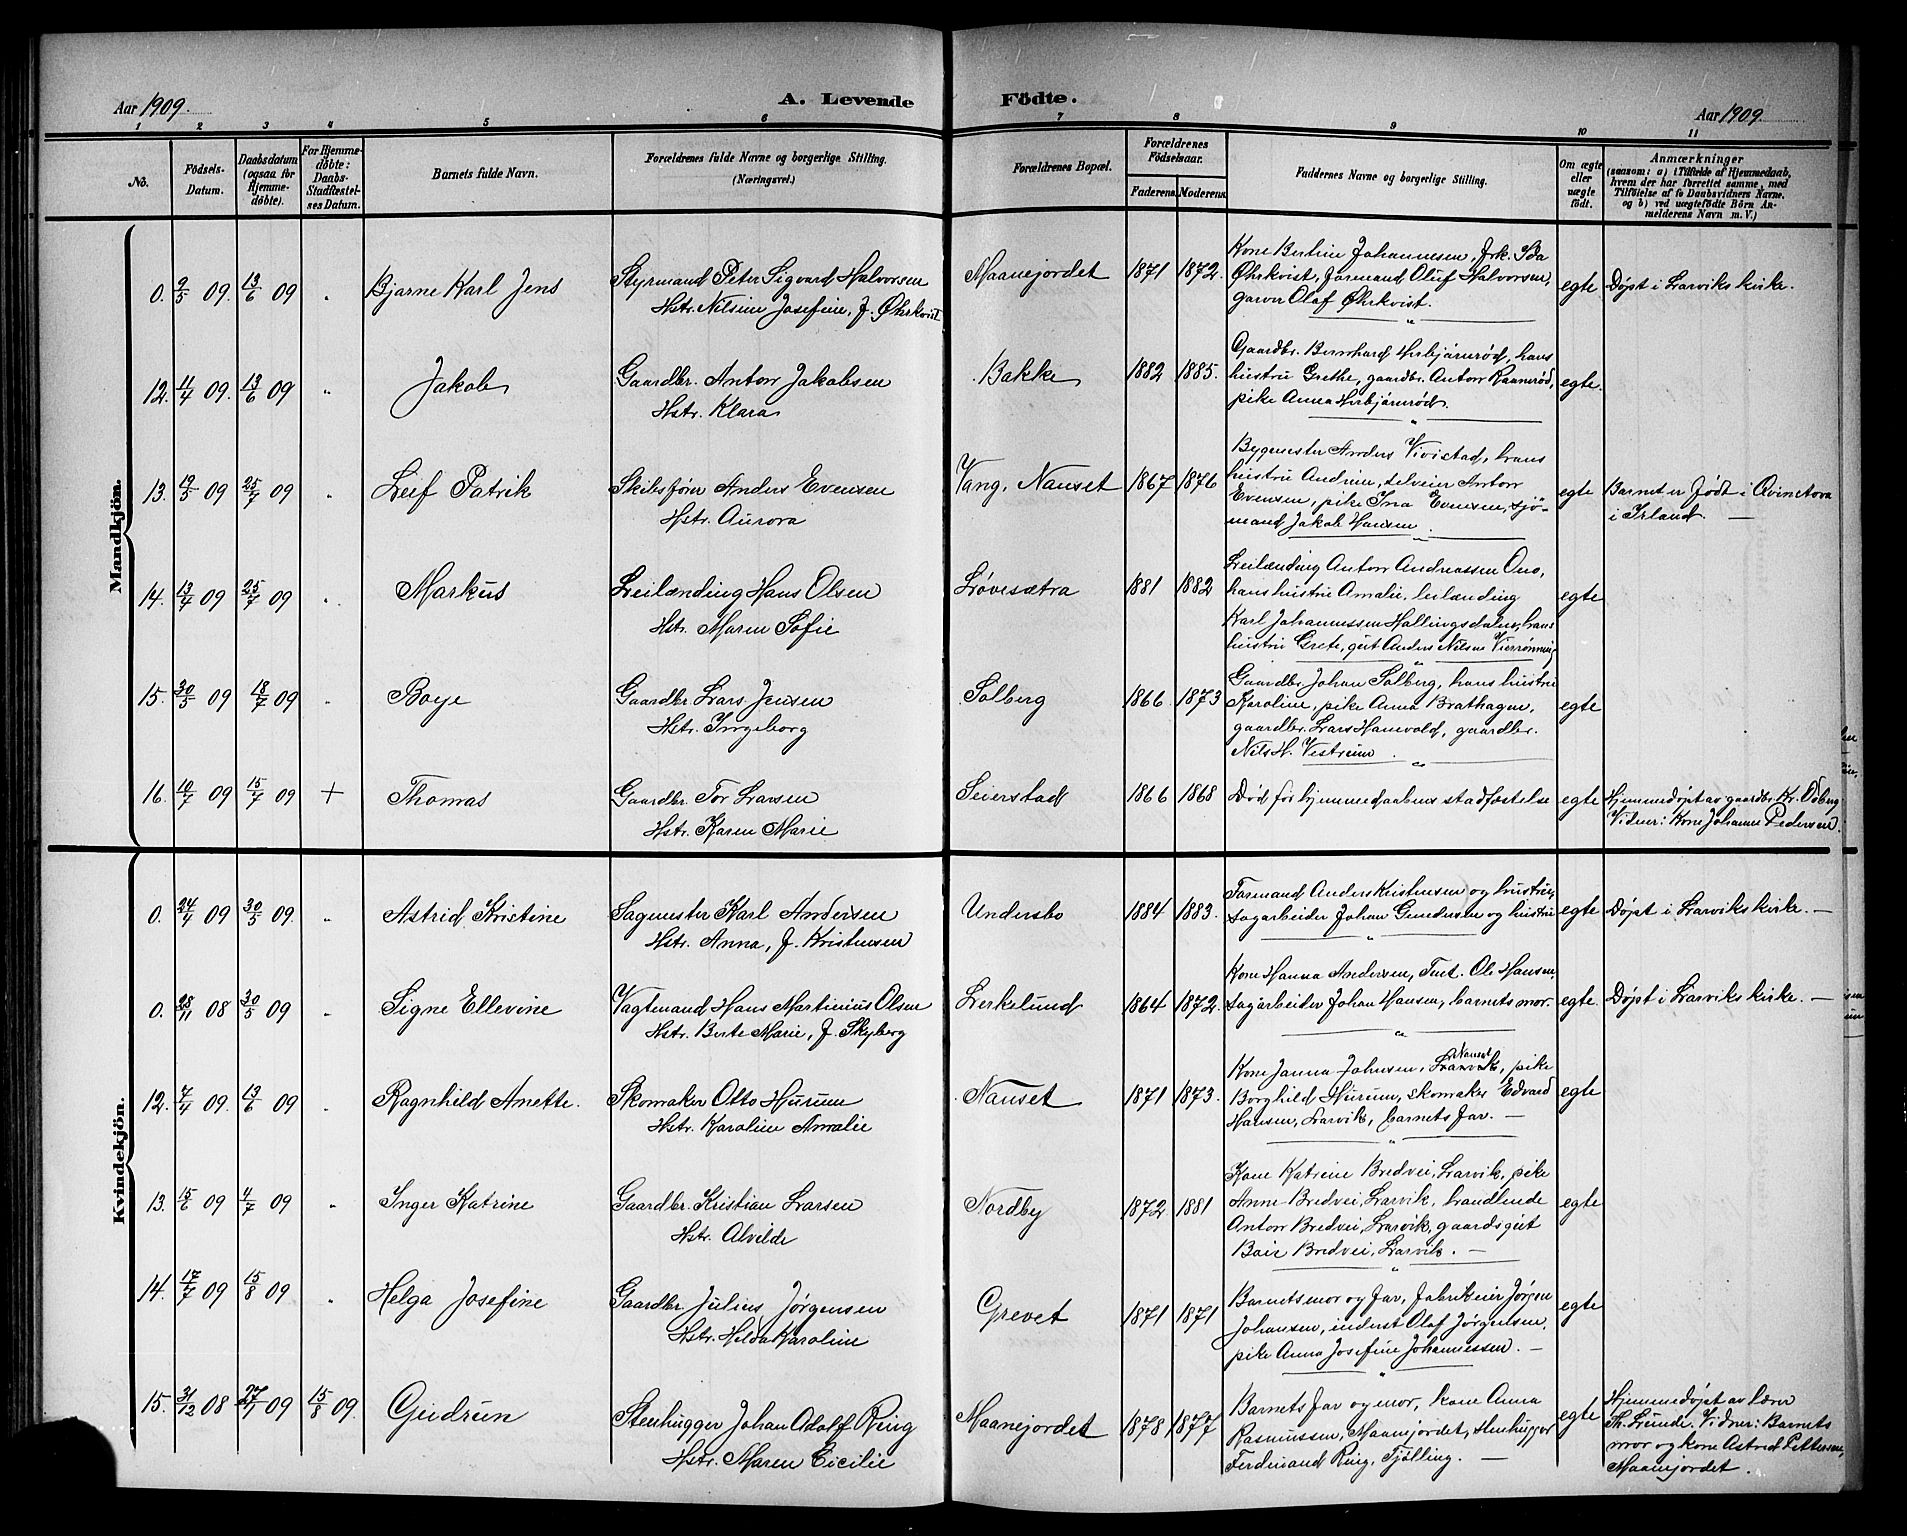 Aar 1909.
A. Levende Födte.
Aar 1909.
1 2 3 4 5 6 7 8 9 10 11
No.
Födsels-Datum.
Daabsdatum (ogsaa for Hjemme-döbte).
For Hjemme-döbte: Daabs-Stadfæstelses Datum.
Barnets fulde Navn.
Forældrenes fulde Navne og borgerlige Stilling.
(Næringsvei.)
Forældrenes Bopæl.
Forældrenes Födselsaar.
Faderens. Moderens.
Faddernes Navne og borgerlige Stilling.
Om ægte eller uægte födt.
Anmærkninger
(saasom: a) i Tilfælde af Hjemmedaab,
hvem der har forrettet samme, med
Tilföielse af to Daabsvidners Navne.
og b) ved uægtefödte Börn An-
melderens Navn m. V.)
Mandkjön.
0. 9/5 09. 13/6 09 " Bjarne Karl Jens
Styrmand Peter Sigvard Halvorsen
Hstr. Nilsine Josefine, f. Øhrkvist
Maanejordet 1871 1872.
Kone Bertine Johannesen, frk. Ida
Øhrkvist, formand Oluf Halvorsen,
garver Olaf Øhrkvist.
egte Døpt i Larviks kirke.
12. 11/4 09. 13/6 09 " Jakob
Gaardbr. Anton Jakobsen
Hstr. Klara
Bakke 1882 1885.
Gaardbr. Bernhard Herbjørnrød, hans
hustru Grethe, gaardbr. Anton Raanerød,
pike Anna Herbjørnrød.
egte.
13. 19/5 09 25/7 09 " Leif Patrik
Skibsfører Anders Evensen
Hstr. Aurora
Vang, Nauset 1867 1876
Bygmester Anders Vivistad, hans
hustru Andrine, selveier Anton
Evensen, pike Ina Evensen, sjö-
mand Jakob Hansen.
egte Barnet er født i
i Irland. —
14. 13/4 09 25/7 09 " Markus
Leilænding Hans Olsen
Hstr. Maren Sofie
Løvesætra 1881 1882
Leilænding Anton Andreassen Ono,
hans hustru Amalie, leilænding
Karl Johannessen Hallingsdalen, hans
hustru Grete, gut Anders Nilsen Vierrønning
egte
15. 30/5 09 18/7 09 " Boye
Gaardbr. Lars Jensen
Hstr. Ingeborg
Solberg 1866 1873
Gaardbr. Johan Solberg, hans hustru
Karoline, pike Anna Brathagen,
gaardbr. Lars Hanevold, gaardbr.
Nils H. Vestrum.
egte
16. 10/7 09 15/7 09 + Thomas
Gaardbr. Tor Larsen
Hstr. Karen Marie
Seierstad 1866 1868
Død før hjemmedaabens stadfæstelse
egte Hjemmedøpt av gaardbr. Kr. Odberg
Vidner: Kone Johanne Pedersen.
Kvindekjön.
0. 24/4 09 30/5 09. " Astrid Kristine
Sagmester Karl Andersen
Hstr. Anna, f. Kristensen
Undersbo 1884 1883.
Formand Anders Kristensen og hustru,
sagarbeider Johan Gundersen og hustru
egte Døpt i Larviks kirke. —
0. 28/11 08 30/5 09 " Signe Ellevine
Vagtmand Hans Martinius Olsen
Hstr. Berte Marie, f. Skyberg
Lerkelund 1864 1872.
Kone Hanna Andersen, Tmt. Ole Hansen,
sagarbeider Johan Hansen, barnets mor.
egte. Døpt i Larviks kirke. —
12. 7/4 09. 13/6 09 " Ragnhild Anette.
Skomaker Otto Hurum
Hstr. Karoline Amalie
Nauset 1871 1873.
Kone Janna Johnsen, Nauset, pike
Borghild Hurum, skomaker Edvard
Hansen, Larvik, barnets far. —
egte
13. 15/6 09 4/7 09 " Inger Katrine
Gaardbr. Kristian Larsen
Hstr. Alvilde
Nordby 1872 1881
Kone Katrine Bredvei, Larvik, pike
Anne Bredvei, Larvik, handlende
Anton Bredvei, Larvik, gaardsgut
Boie Bredvei, Larvik. —
egte
14. 17/7 09 15/8 09 " Helga Josefine
Gaardbr Julius Jørgensen
Hstr. Hilda Karoline
Grevet 1871 1871
Barnets mor og far, fabrikeier Jørgen
Johansen, inderst Olaf Jørgensen,
pike Anna Josefine Johannessen. —
egte
15. 31/12 08 27/1 09 15/8 09. Gudrun
Stenhugger Johan Adolf Ring
Hstr. Maren Cicilie
Maanejordet 1878 1877
Barnets far og mor, kone Anna
Rasmussen, Maanejordet, stenhugger
Ferdinand Ring, Tjølling. —
egte Hjemmedøpt av lærer
Th. Lunde. Vidner: Barnets
mor og kone Astrid Pettersen,
Maanejordet.